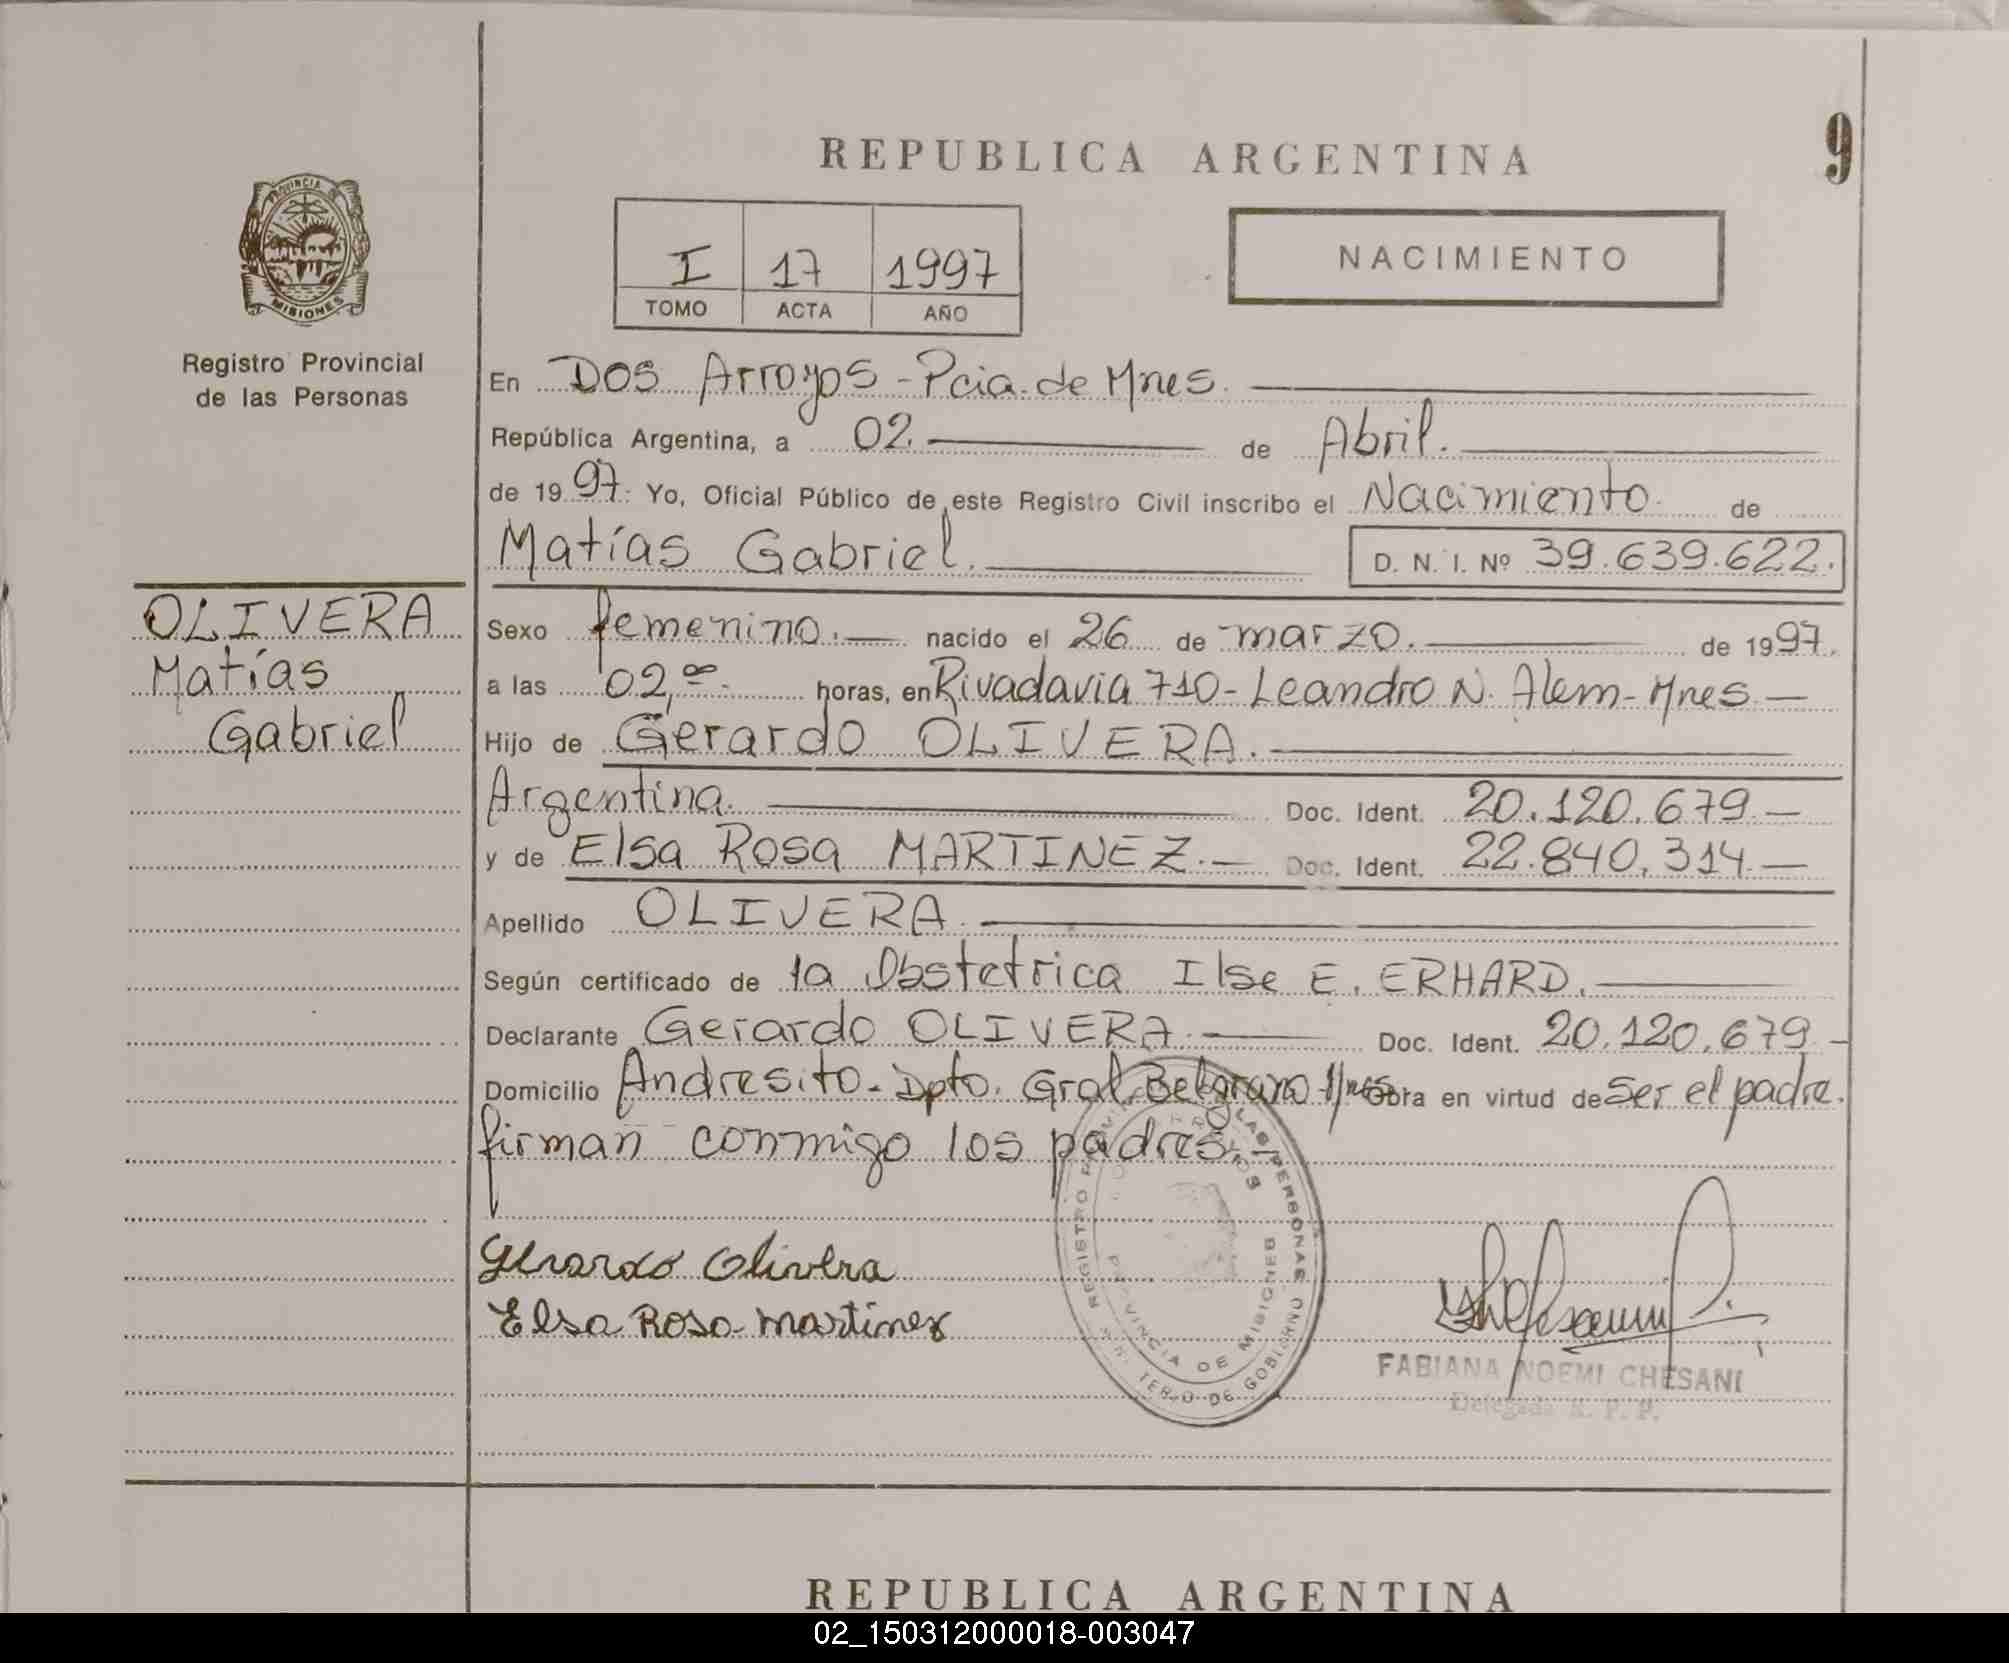 REPUBLICA ARGENTINA
9
PROVINCIA DE
MISIONES
Registro Provincial
de las Personas
I 17 1997
TOMO ACTA AÑO
NACIMIENTO
En Dos Arroyos - Pcia. de Mnes.
República Argentina, a 02. de Abril.
de 1997. Yo, Oficial Público de este Registro Civil inscribo el Nacimiento de
Matías Gabriel. D. N. I. Nº 39.639.622.
OLIVERA
Matías
Gabriel
Sexo femenino. nacido el 26 de marzo. de 1997.
a las 02,00 horas, en Rivadavia 710 - Leandro N. Alem - Mnes
Hijo de Gerardo OLIVERA.
Argentina. Doc. Ident. 20.120.679
y de Elsa Rosa MARTINEZ. Doc. Ident. 22.840.314
Apellido OLIVERA.
Según certificado de la Obstetrica Ilse E. ERHARD.
Declarante Gerardo OLIVERA Doc. Ident. 20.120.679
Domicilio Andresito - Dpto. Gral. Belgrano Mnes Obra en virtud de Ser el padre.
firman conmigo los padres.
Gerardo Olivera
Elsa Rosa Martinez
REGISTRO LAS PERSONAS
PROVINCIA DE MISIONES
DE GOBIERNO
FABIANA NOEMI CHESANI
Delegada R. P. P.
REPUBLICA ARGENTINA
02_150312000018-003047